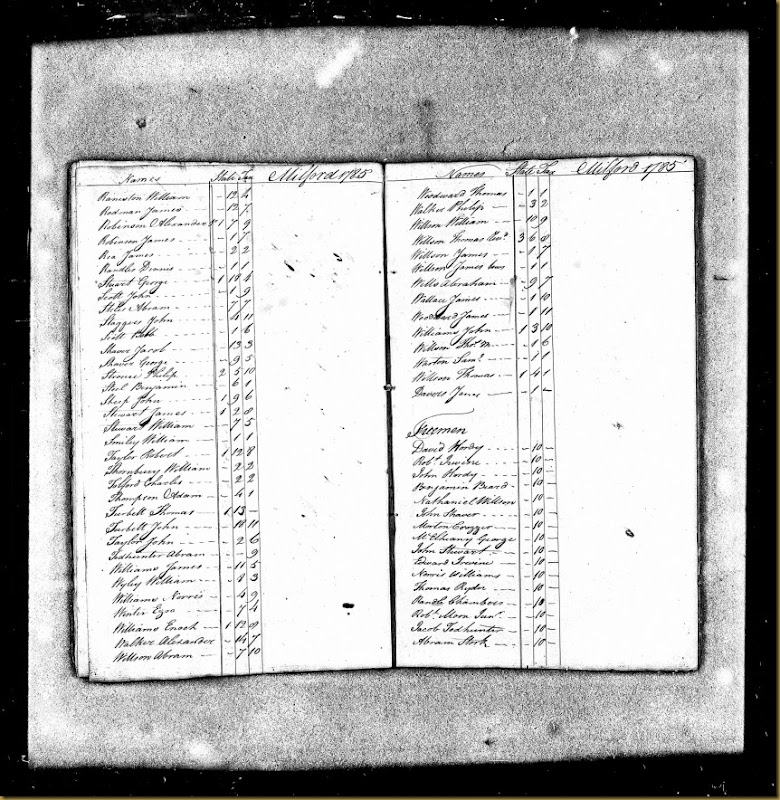 Names State Tax Milford 1785
Rameston William - 12 4
Redman James - 12 7
Robinson Alexander 1 7 9
Robinson James - 1 7
Rea James - 2 2
Randles Dennis - 1 1
Stuart George 1 18 6
Scott John - 9
Stiles Abram - 7 7
Staggers John - 4 11
Scott - 1 6
Shaver Jacob - 13 3
Shaver George - 9 5
Philip 2 5 10
Steel Benjamin - 6 1
Sharp John 1 9 6
Stewart James 1 2 8
Stewart William - 7 5
Smiley William - 1 1
Taylor Robert 1 12 8
Thornbury William - 2 2
Telford Charles - 2 2
Thompson Adam - 4 1
Turbett Thomas 1 13 -
Turbett John - 18 11
Taylor John - 2 6
Tedhunter Abram - 9
Williams James - 11 5
Wyley William - 8 3
Williams Norris - 4 9
Winter Ezra - 7 4
Williams Enoch 1 12 9
Walker Alexander - 14 7
Willson Abram - 7 10
Names State Tax Milford 1785
Woodward Thomas - 1 1
Walker Philip - 3 2
Willson William - 10 9
Willson Thomas Revd. 3 6 8
Willson James - 1 7
Willson James - 1 1
Wills Abraham - 9 7
Wallace James - 1 10
Woodward James - 1 11
Williams John 1 3 10
Willson Thos. - 1 6
Warton Saml. - 1 1
Willson Thomas 1 4 1
Davers James - 1 -
Freemen
David Hordy - 10 -
Robt. Irwine - 10 -
John Hordy - 10 -
Benjamin Beard - 10 -
Nathaniel Willson - 10 -
John Shaver - 10 -
Morton Crozzer - 10 -
McElhaney George - 10 -
John Stewart - 10 -
Edward Irwine - 10 -
Norris Williams - 10 -
Thomas Ryder - 10 -
Randle Chambers - 10 -
Robt. Moon Junr. - 10 -
Jacob Tedhunter - 10 -
Abram Stork - 10 -